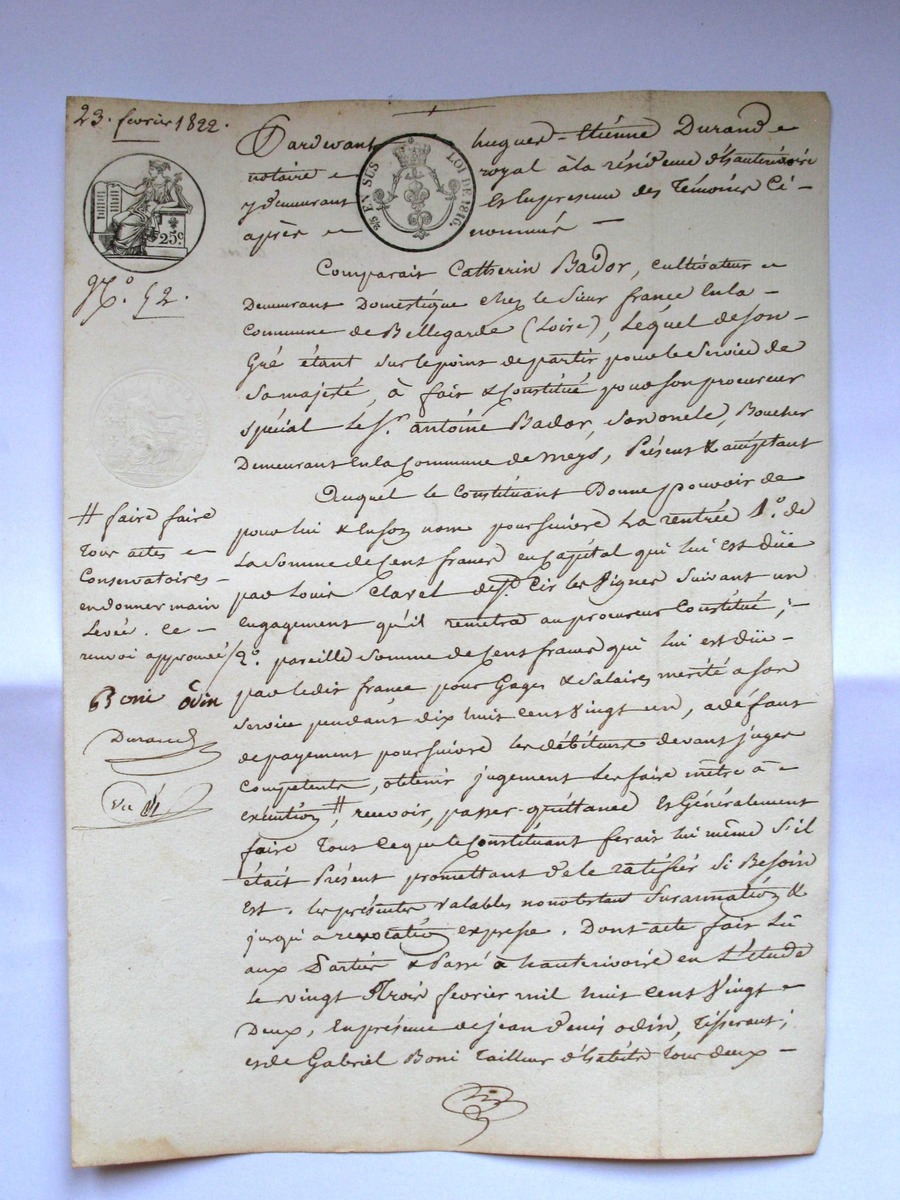 23. fevrier 1822.
Pardevant hugues-Etiénne Durand
notaire royal à la résidence d'hauterivoire
y demeurant Et En presence des Témoins Ci-
après nommés
25 EN SUS LOI DE 1816.
25c
N.º 52.
Comparait Catherin Bador, cultivateur
Demeurant Domestique chez le Sieur france En la
Commune de Bellegarde (Loire), Lequel de son
Gré étant sur le point de partir pour le service de
Sa majesté, à fait & Constitué pour son procureur
spécial Le Sr. antoine Bador, son oncle, Boucher
Demeurant En la Commune de meys, Présent & acceptant
Auquel le Constituant Donne pouvoir de
pour lui & En son nom poursuivre La rentrée 1.º de
La Somme de Cent francs en Capital qui lui Est düe
par Louis Clavel de St. Cir les Vignes Suivant un
engagement qu'il remettra au procureur Constitué ;
2.º pareille Somme de Cent francs qui lui est düe
par ledit france pour Gages & Salaires mérité a son
Service pendant dix huit cent Vingt un, a défaut
de payement poursuivre les débiteurs devant juges
Competents, obtenir jugement Les faire mêtre à
exécution # recevoir, passer quittance Et Généralement
faire Tous ce que le Constituant ferait lui même S'il
était Présent promettant de le ratifier Si Besoin
Est. les présentes Valables nonobstant Surannation &
jusqu'a revocation expresse. Dont acte fait Lû
aux Parties & Passé à hauterivoire en L'étude
Le vingt Trois fevrier mil huit cent Vingt
Deux, En présence de jean Denis odin, Tisserant ;
et de Gabriel Boni Tailleur d'habits Tous deux
# faire faire
Tous actes
Conservatoires
en donner main
Levée. Ce
renvoi approuvé
Boni Odin
Durand
Vu